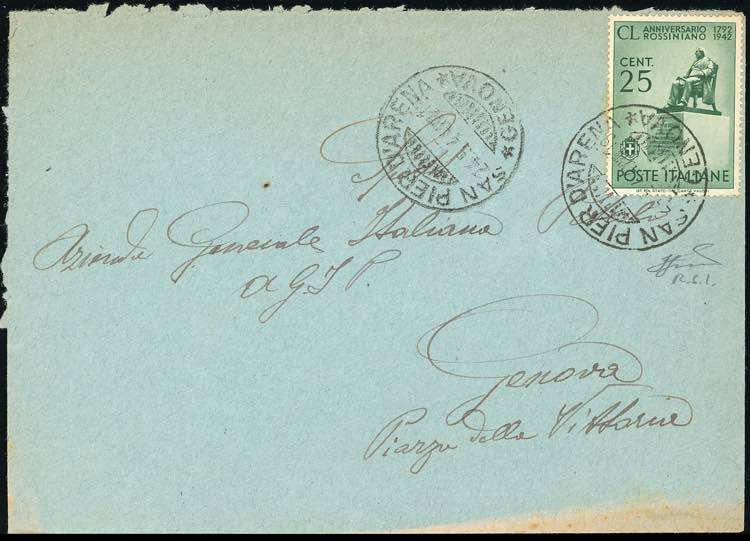 CL ANNIVERSARIO ROSSINIANO 1792 1942
CENT. 25
POSTE ITALIANE
SAN PIER D'ARENA
* GENOVA *
SAN PIER D'ARENA
* GENOVA *
Azienda Generale Italiana
AGIP
Genova
Piazza della Vittoria
R.S.I.